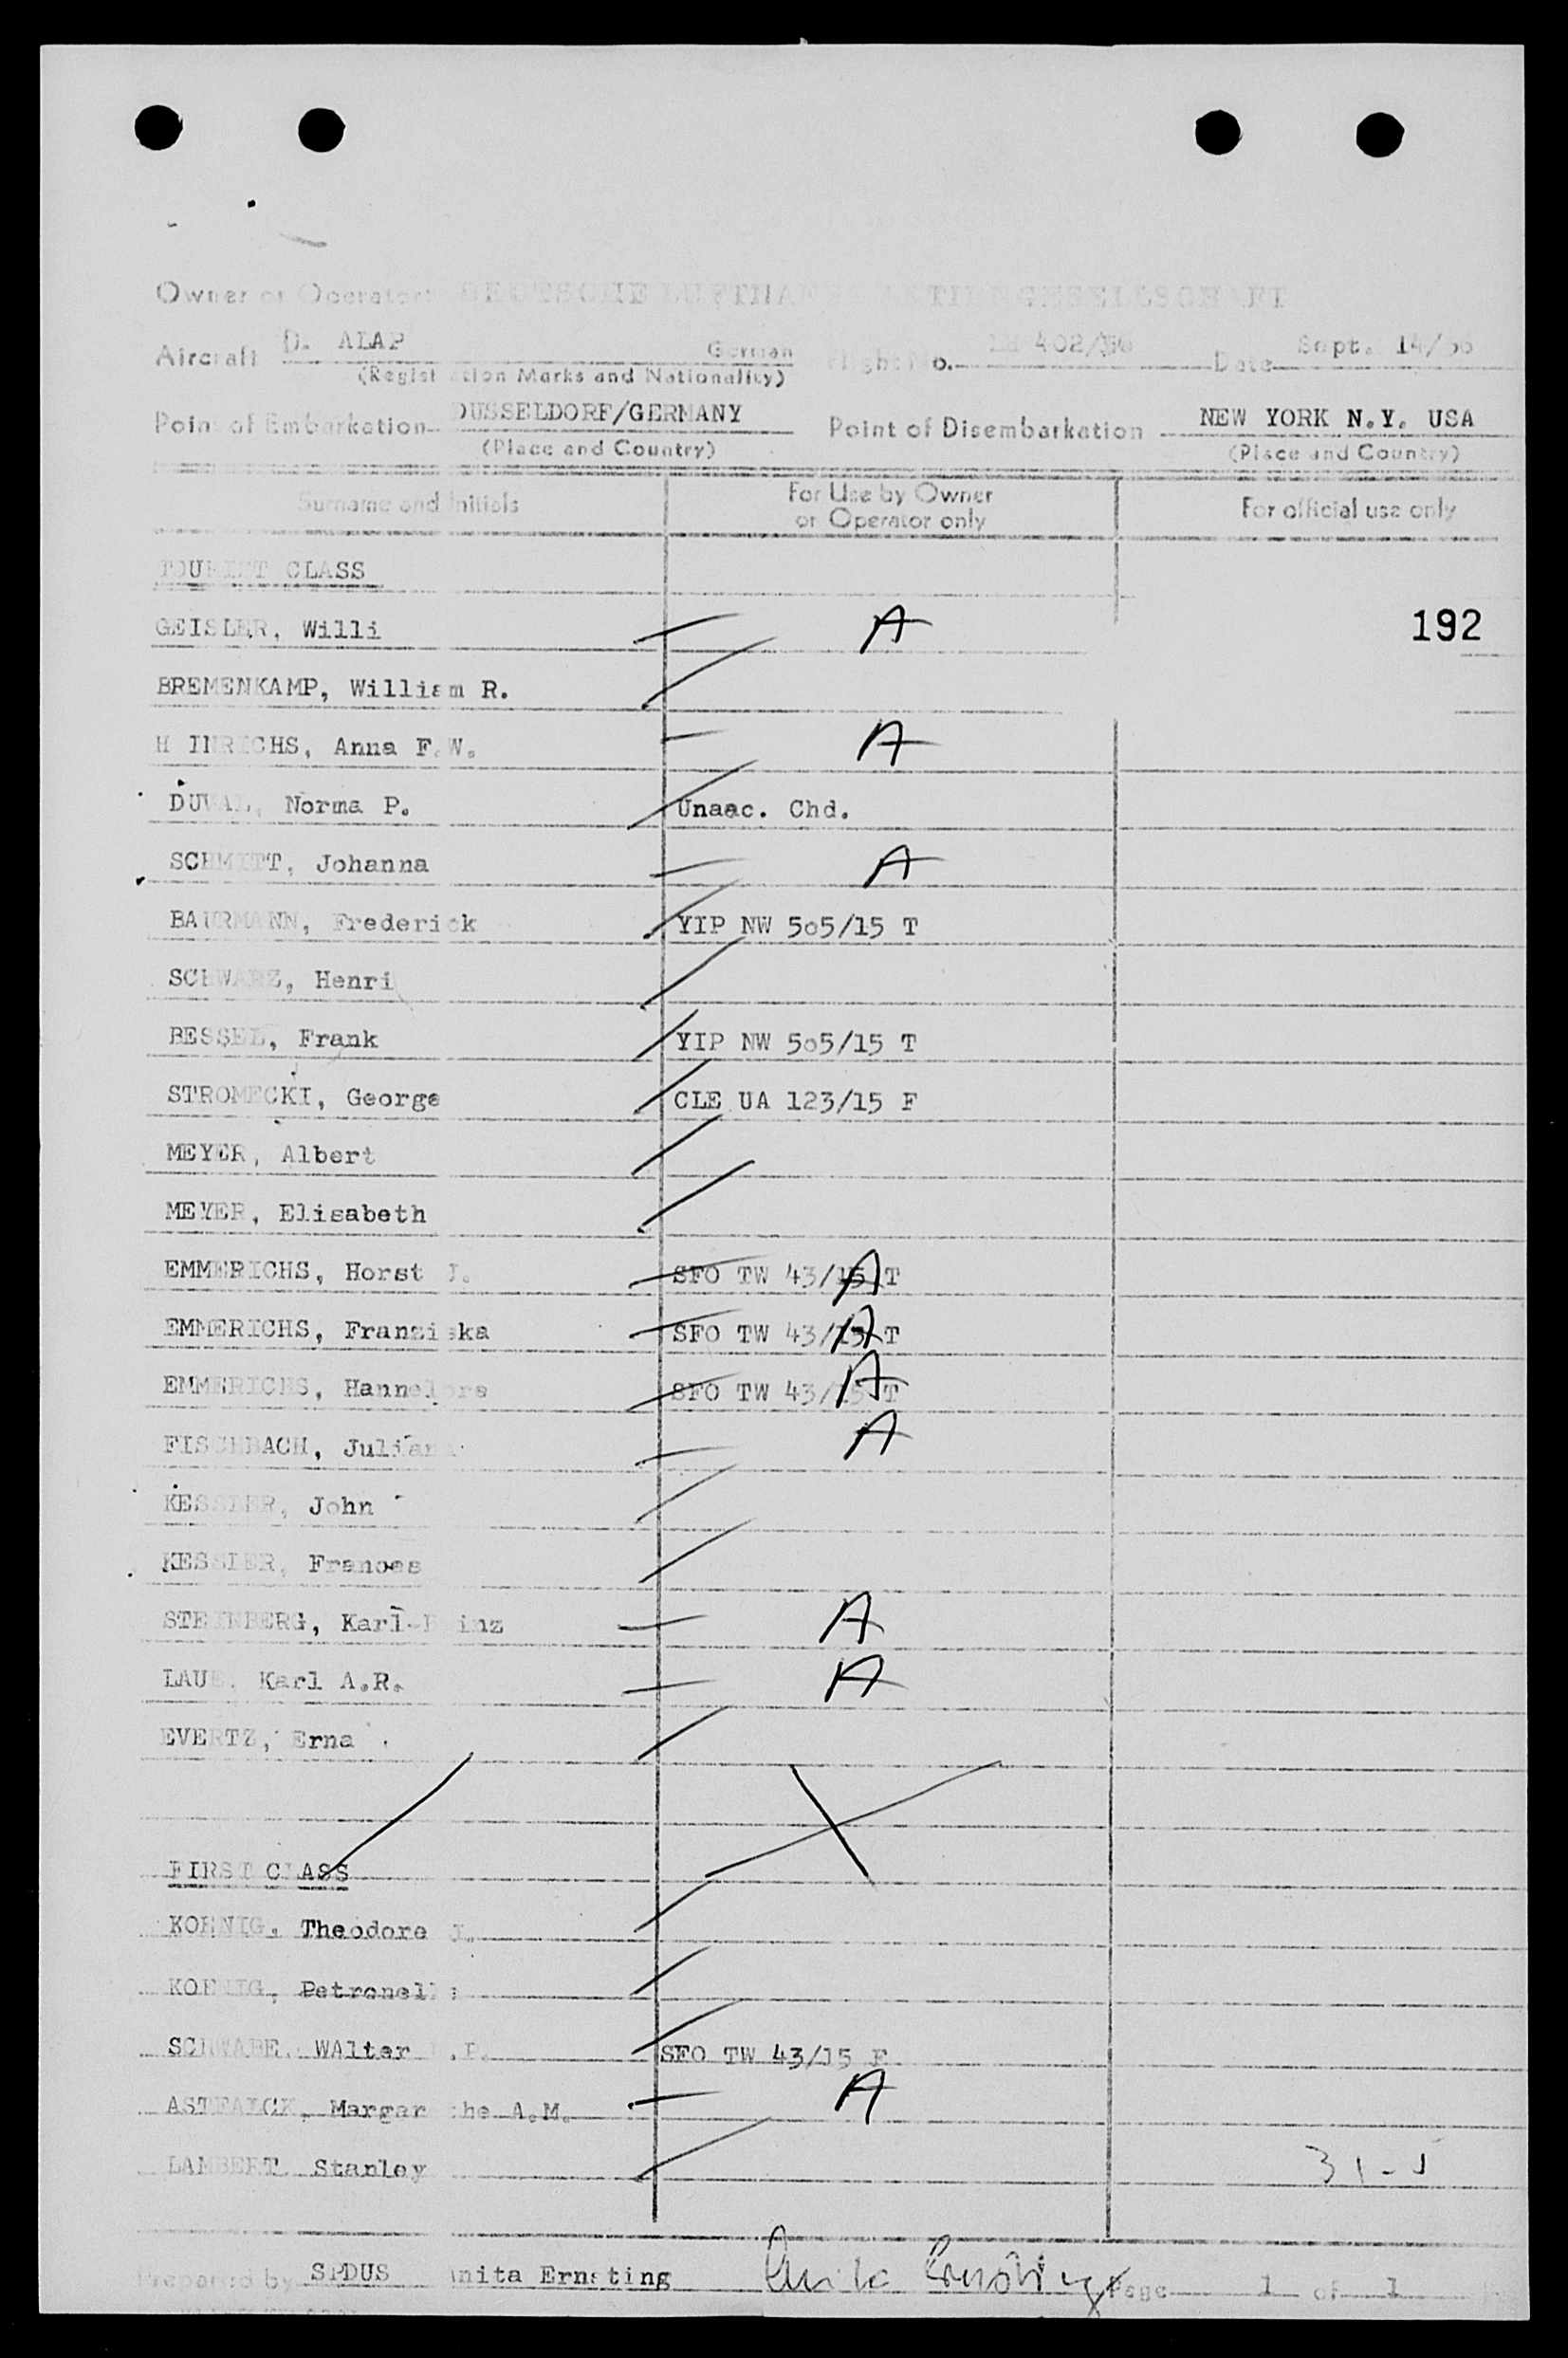 Owner or Operator: DEUTSCHE LUFTHANSA AKTIENGESELLSCHAFT
Aircraft D. ALAP German Flight No. LH 402/ Date Sept. 14/56
(Registration Marks and Nationality)
Point of Embarkation DUSSELDORF/GERMANY Point of Disembarkation NEW YORK N.Y. USA
(Place and Country) (Place and Country)
Surname and Initials For Use by Owner or Operator only For official use only
TOURIST CLASS
GEISLER, Willi A 192
BREMENKAMP, William R.
H INRICHS, Anna F.W. A
DUVAL, Norma P. Unaac. Chd.
SCHMITT, Johanna A
BAURMANN, Frederick YIP NW 505/15 T
SCHWARZ, Henri
BESSEL, Frank YIP NW 505/15 T
STROMECKI, George CLE UA 123/15 F
MEYER, Albert
MEYER, Elisabeth
EMMERICHS, Horst J. SFO TW 43/15 T A
EMMERICHS, Franziska SFO TW 43/15 T A
EMMERICHS, Hannelore SFO TW 43/15 T A
FISCHBACH, Juliana A
KESSLER, John
KESSLER, Frances
STEINBERG, Karl-Heinz A
LAUE, Karl A.R. A
EVERTZ, Erna
FIRST CLASS
KOENIG, Theodore J.
KOENIG, Petronella
SCHWABE, WAlter .P. SFO TW 43/15 F
Margar the A.M. A
LAMBERT Stanley 31-J
Prepared by SPDUS Anita Ernsting Anita Ernsting Page 1 of 1